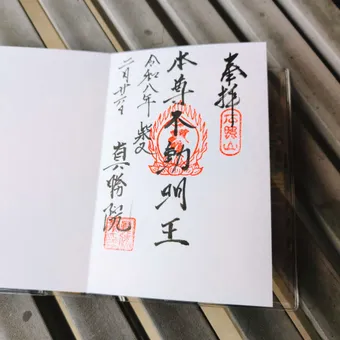 奉拝
本尊不動明王
柴又 真勝院
令和八年
二月廿六日